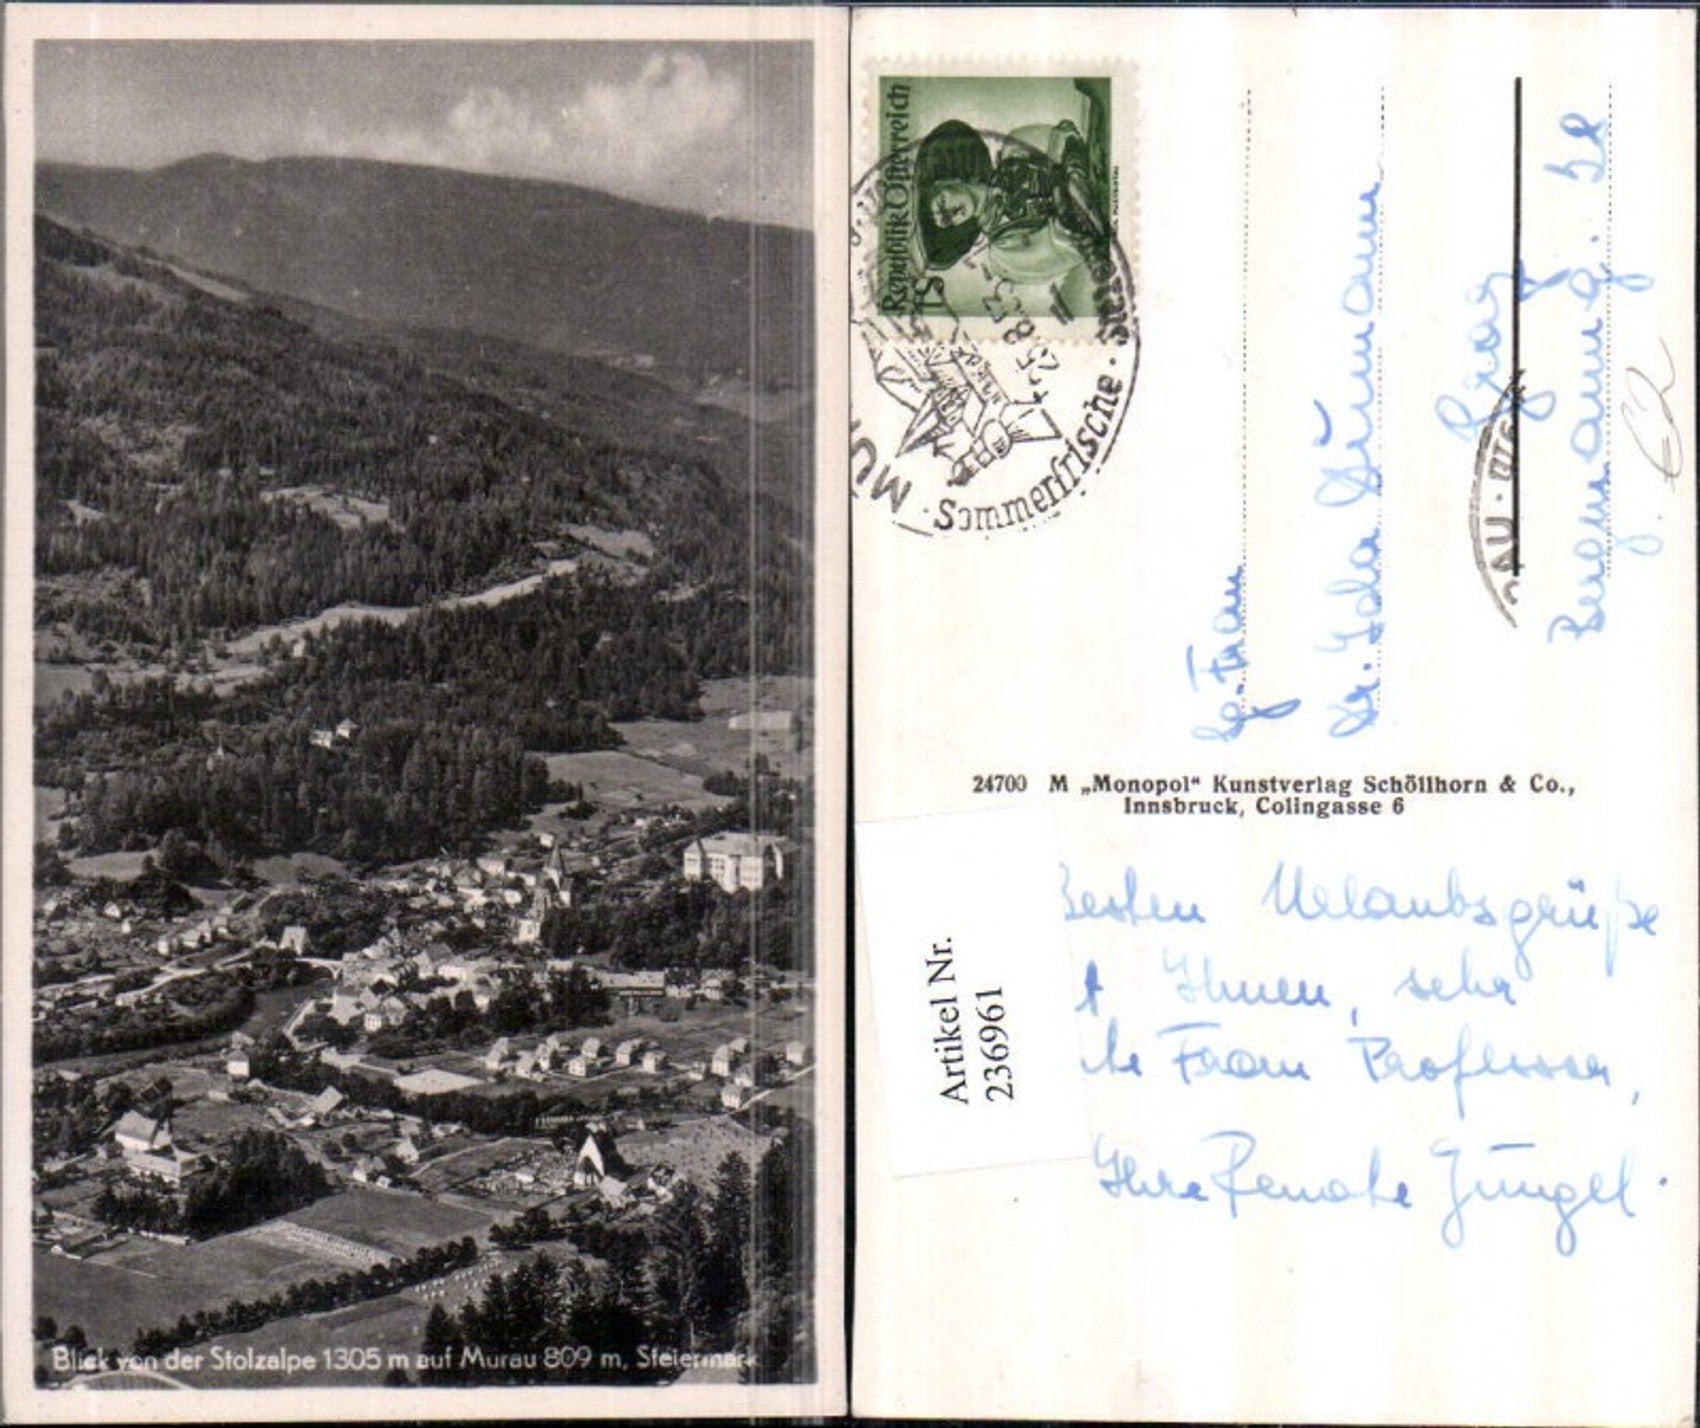 Blick von der Stolzalpe 1305 m auf Murau 809 m, Steiermark
Republik Österreich
1S
25.8.53
Sommerfrische
Frau
Dr. Ida
Graz
24700 M „Monopol“ Kunstverlag Schöllhorn & Co.,
Innsbruck, Colingasse 6
Artikel Nr.
236961
Besten Urlaubsgrüße
Ihnen, sehr
Frau Professor,
Ihre Renate Jüngel.